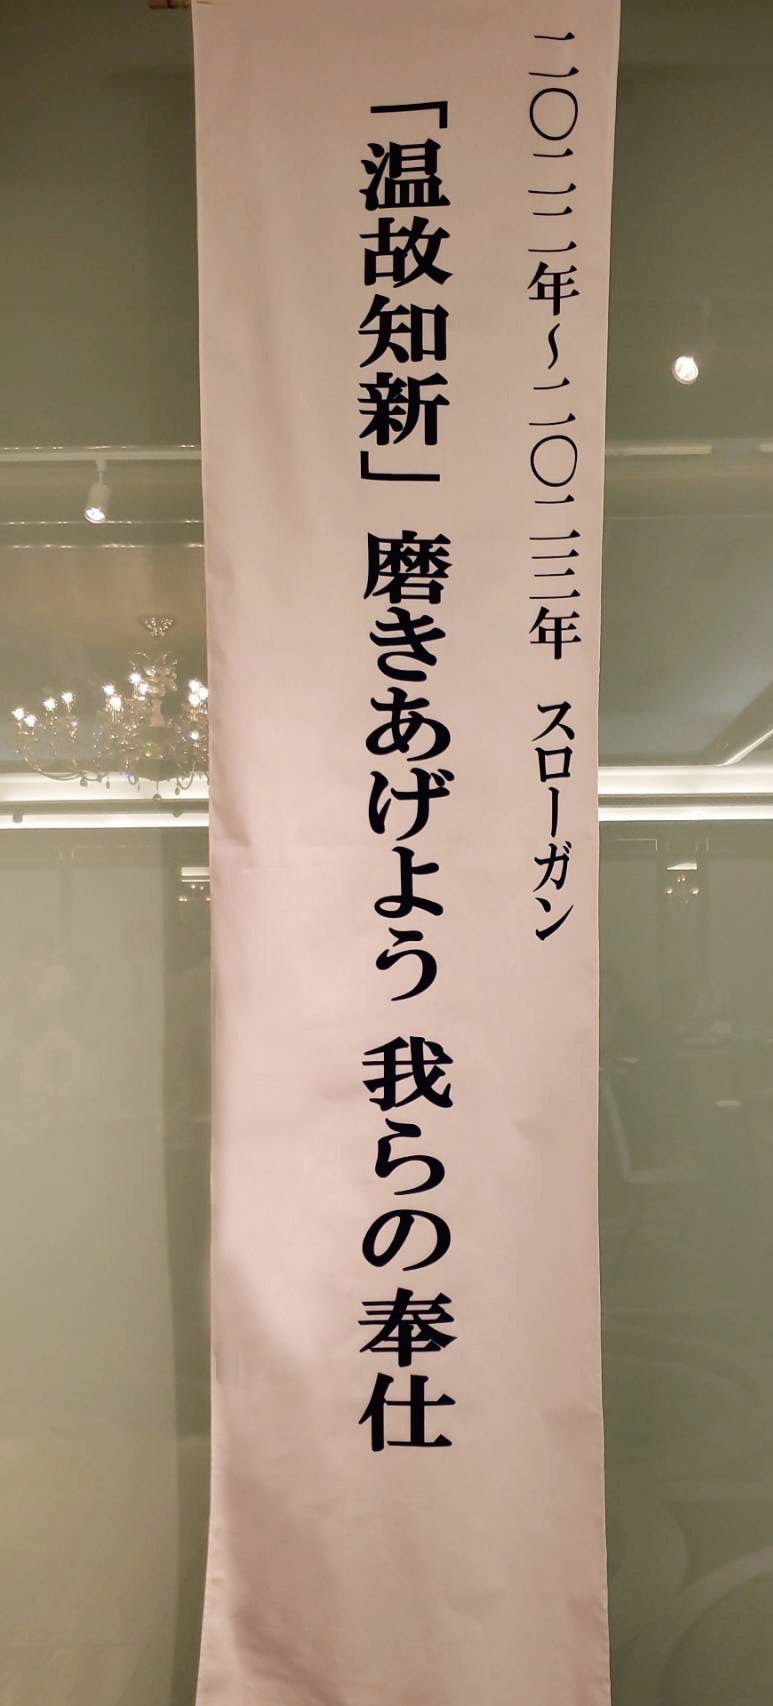 二〇二二年～二〇二三年 スローガン
「温故知新」 磨きあげよう 我らの奉仕